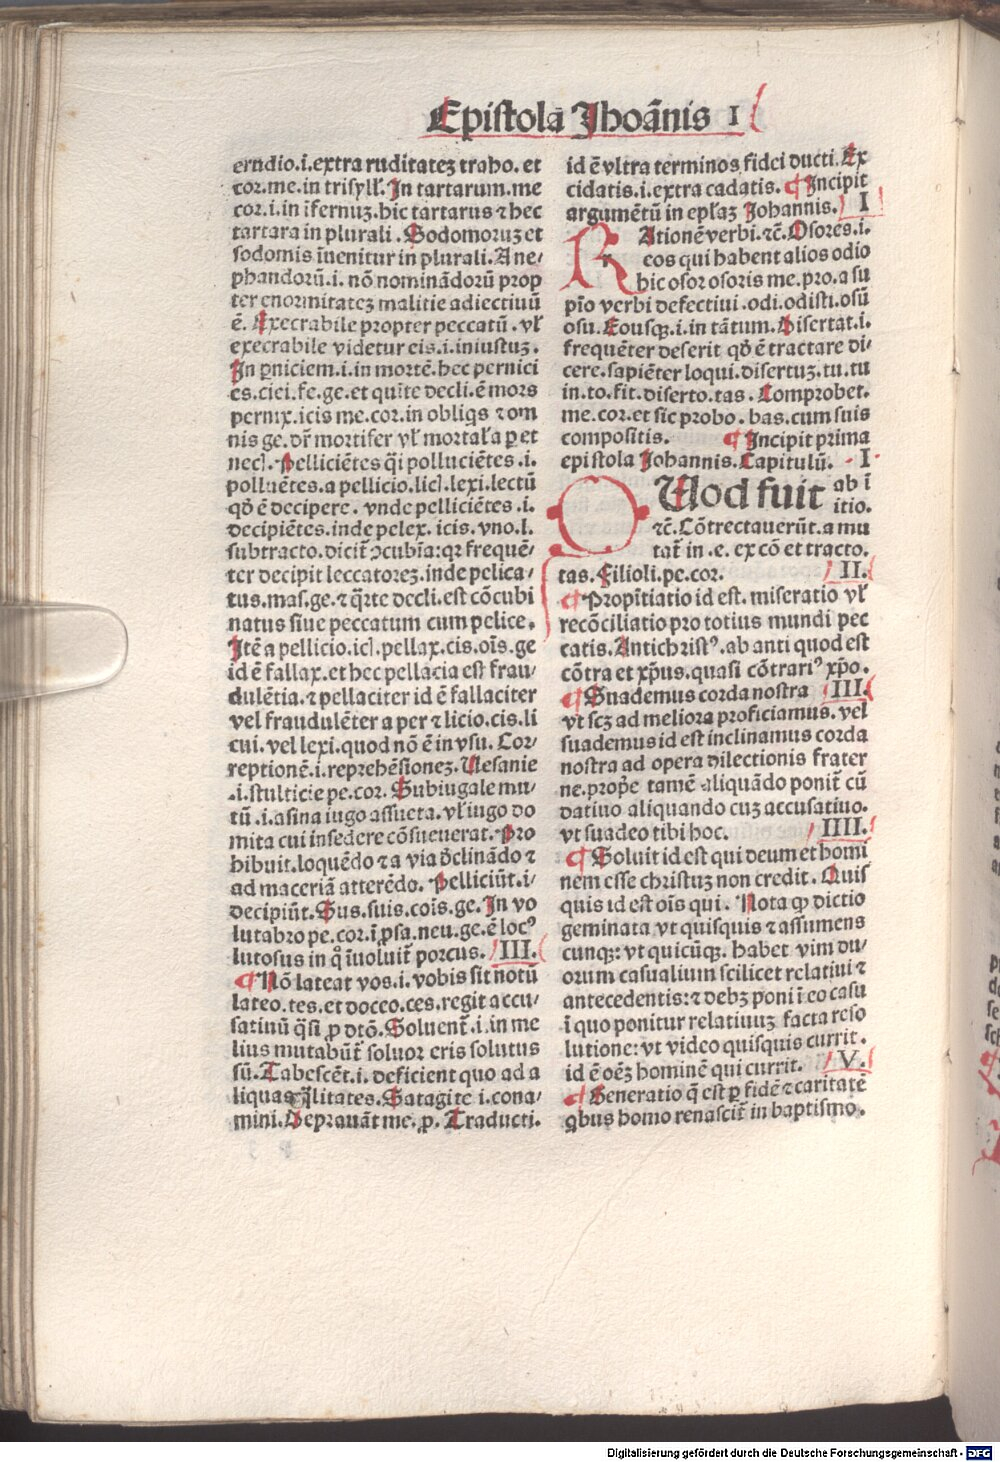 Epistola Jhoãnis I
erudio.i.extra ruditatez traho. et
cor.me.in trisyll'. In tartarum.me
cor.i.in ĩfernuz.hic tartarus ⁊ hec
tartara in plurali. Sodomoruz et
sodomis ĩuenitur in plurali. A ne/
phandorũ.i. nõ nominãdorũ prop
ter enormitatez malitie adiectiuũ
ẽ. Execrabile propter peccatũ. vl'
execrabile videtur eis.i.iniustuz.
In ꝑniciem.i.in mortẽ.hec pernici
es.ciei.fe.ge.et quĩte decli.ẽ mors
pernix.icis me.cor.in obliqs ⁊ om
nis ge. dr̃ mortifer vl' mortal'a ꝑ et
necl. Pelliciẽtes q̃i polluciẽtes.i.
polluẽtes.a pellicio.licl.lexi.lectũ
qd̾ ẽ decipere. vnde pelliciẽtes.i.
decipiẽtes.inde pelex. icis. vno.l.
subtracto.dicit̃ ɔcubĩa: qꝛ frequẽ/
ter decipit leccatorez.inde pelica/
tus.mas.ge.⁊ q̃rte decli.est cõcubi
natus siue peccatum cum pelice.
Itẽ a pellicio.icl.pellax.cis.oĩs.ge
id ẽ fallax.et hec pellacia est frau/
dulẽtia.⁊ pellaciter id ẽ fallaciter
vel fraudulẽter a per ⁊ licio.cis.li
cui.vel lexi.quod nõ ẽ in vsu. Cor/
reptionẽ.i.reprehẽsionez. Vesanie
.i.stulticie pe.cor. Subiugale mu/
tũ.i.asina iugo assueta. vl' iugo do
mita cui insedere cõsueuerat. Pro
hibuit.loquẽdo ⁊ a via d̾clinãdo ⁊
ad maceriã atterẽdo. Pelliciũt.i/
decipiũt. Sus.suis.cois.ge. In vo
lutabro pe.cor.ĩ ꝓsa.neu.ge.ẽ locꝰ
lutosus in q̊ ĩuoluit̃ porcus. III.
¶ Nõ lateat vos.i.vobis sit notũ
lateo.tes.et doceo.ces.regit accu/
satiuũ q̃si ꝓ dtõ. Soluent̃.i.in me
lius mutabũt̃ soluor eris solutus
sũ. Tabescẽt.i. deficient quo ad a
liquas q̃litates. Satagite i.cona/
mini. Deprauãt me. ꝓ. Traducti.
id ẽ vltra terminos fidei ducti. Ex
cidatis.i.extra cadatis. ¶ Incipit
argumẽtũ in epl'az Johannis. I
RAtionẽ verbi.⁊c̃. Osores.i.
r cos qui habent alios odio
hic osor osoris me.pro.a su
pĩo verbi defectiui.odi.odisti.osũ
osu. Eousqꝫ.i.in tãtum. Disertat.i.
frequẽter deserit qd̾ ẽ tractare di/
cere.sapiẽter loqui.disertuz.tu.tu
in.to.fit.diserto.tas. Comprobet.
me.cor.et sic probo.bas.cum suis
compositis. ¶ Incipit prima
epistola Johannis. Capitulũ. I
QUod fuit ab ĩ
itio.
⁊c̃. Cõtrectauerũt.a mu
tat̃ in.e. ex cõ et tracto.
tas. Filioli.pe.cor. II.
¶ Propĩtiatio id est. miseratio vl'
recõciliatio pro totius mundi pec
catis. Antichristꝰ.ab anti quod est
cõtra et xp̃us.quasi cõtrariꝰ xp̃o.
¶ Suademus corda nostra III.
vt scz ad meliora proficiamus.vel
suademus id est inclinamus corda
nostra ad opera dilectionis frater
ne.prop̾e tamẽ aliquãdo ponit̃ cũ
datiuo aliquando cuz accusatiuo.
vt suadeo tibi hoc. IIII.
¶ Soluit id est qui deum et homi
nem esse christuz non credit. Quis
quis id est oĩs qui. Nota ꝙ dictio
geminata vt quisquis ⁊ assumens
cunqꝫ: vt quicũqꝫ. habet vim du/
orum casualium scilicet relatiui ⁊
antecedentis:⁊ debꝫ poni ĩ eo casu
ĩ quo ponitur relatiuuz facta reso
lutione:vt video quisquis currit.
id ẽ oẽz hominẽ qui currit. V.
¶ Generatio q̃ est ꝑ fidẽ ⁊ caritatẽ
qbus homo renascit̃ in baptismo.
Digitalisierung gefördert durch die Deutsche Forschungsgemeinschaft - DFG